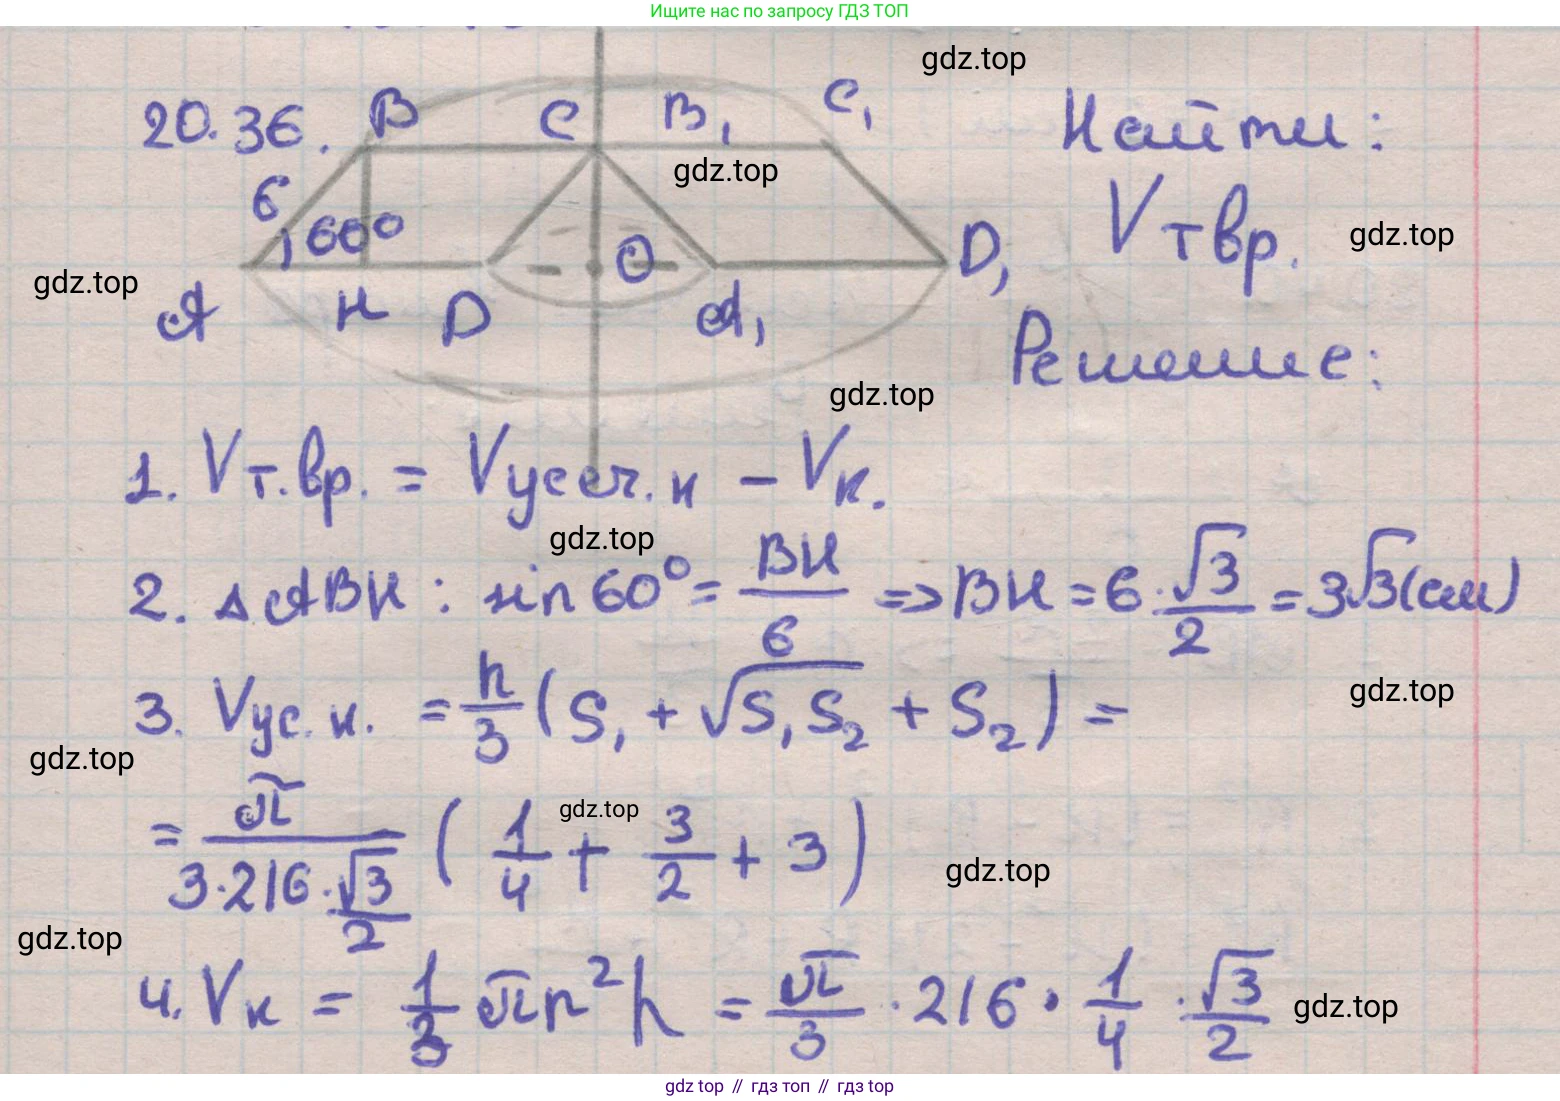 Ищите нас по запросу ГДЗ ТОП
gdz.top
20.36.
B
C
B₁
C₁
Найти:
gdz.top
6
60°
O
D₁
Vт вр.
gdz.top
gdz.top
A
H
D
A₁
Решение:
gdz.top
1. Vт.вр. = Vусеч.к - Vк.
gdz.top
2. ΔABH : sin 60° = BH/6 => BH = 6 · √3/2 = 3√3(см)
gdz.top
3. Vус.к. = h/3 (S₁ + √S₁S₂ + S₂) =
gdz.top
= π/(3·216·√3/2) (1/4 + 3/2 + 3)
gdz.top
gdz.top
gdz.top
4. Vк = 1/3 πr²h = π/3 · 216 · 1/4 · √3/2
gdz.top
gdz top // гдз топ // гдз top